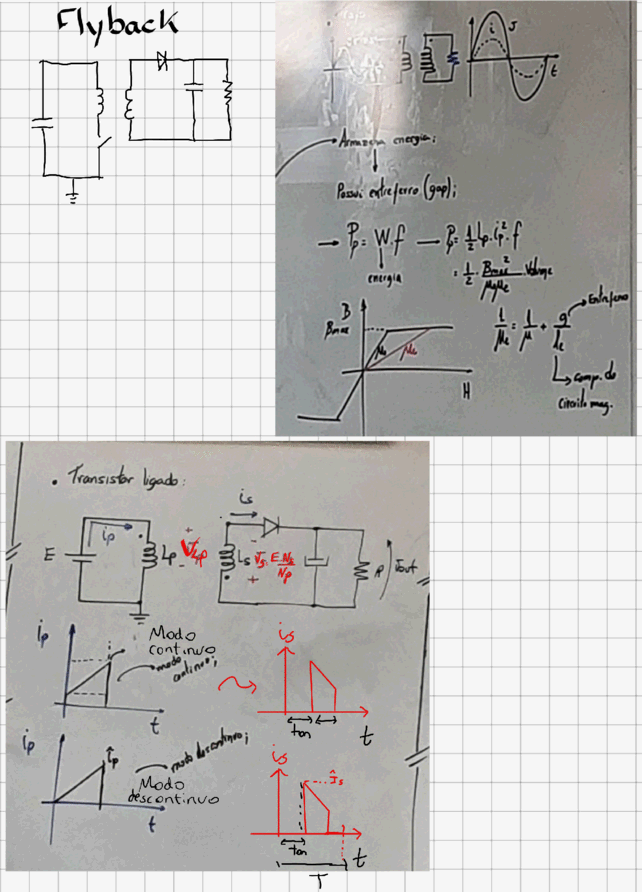 Flyback
i
J
t
Armazena energia;
Possui entreferro (gap);
→ Pp = W.f → Pp = 1/2 Lp.ip².f
energia
= 1/2 . Bmax²/μ0μe . Volume
B
Bmax
μ
μe
H
1/μe = 1/μ + g/le
Entreferro
comp. do
circuito mag.
• Transistor ligado:
E
ip
Lp
+
VLp
-
is
Ls
-
Vs = E.Ns/Np
+
R
Vout
ip
i
Modo
continuo
modo
continuo;
t
is
ton
t
ip
îp
modo descontinuo;
Modo
descontinuo
t
is
Îs
ton
t
T